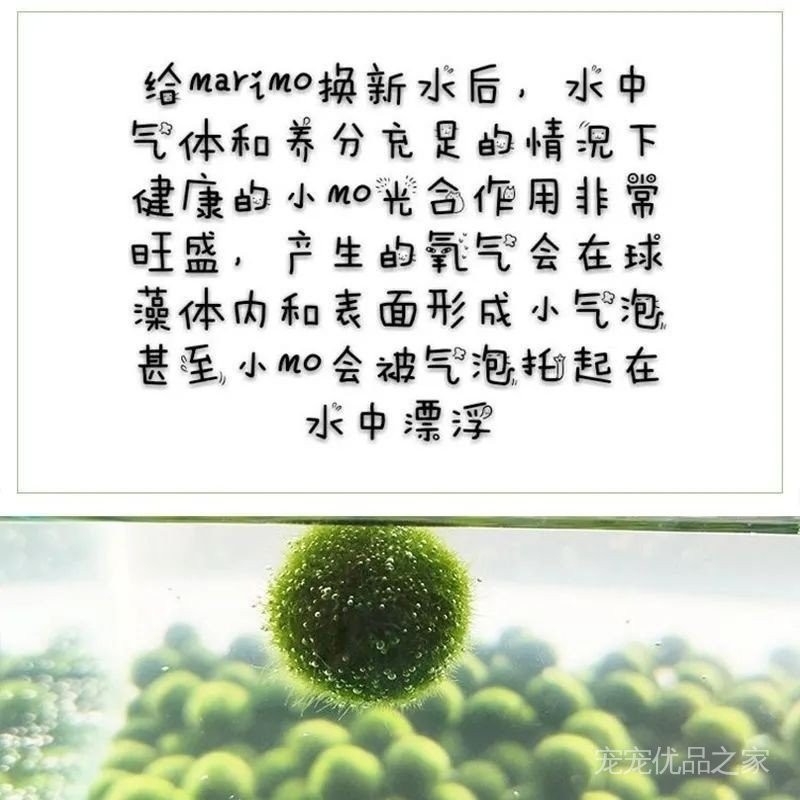 给marimo换新水后，水中
气体和养分充足的情况下
健康的小mo光合作用非常
旺盛，产生的氧气会在球
藻体内和表面形成小气泡
甚至小mo会被气泡托起在
水中漂浮
宠宠优品之家